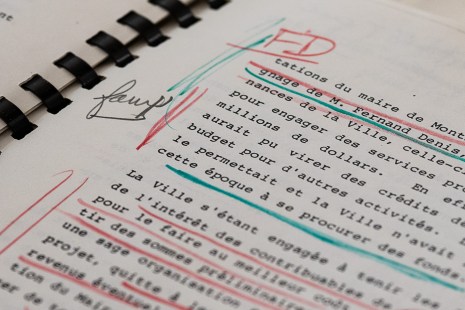 FD
tations du maire de Mont
gnage de M. Fernand Denis
nances de la Ville, celle-ci
pour engager des services pro
millions de dollars. En eff
aurait pu virer des crédits de
budget pour d'autres activités.
le permettait et la Ville n'avait
cette époque à se procurer des fonds
La Ville s'étant engagée à tenir les
de l'intérêt des contribuables de
pour le faire au meilleur coût
tir des sommes préliminaires
une sage organisation
projet, quitte à
revenus éventuels
tion du Maire
ter de